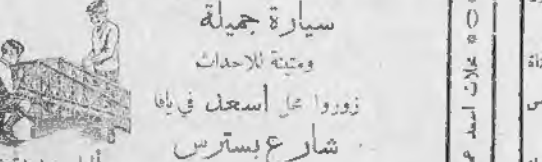 سيارة جميلة
ومتينة للاحداث
زوروا محل اسعد في يافا
شارع بسترس
محلات اسعد